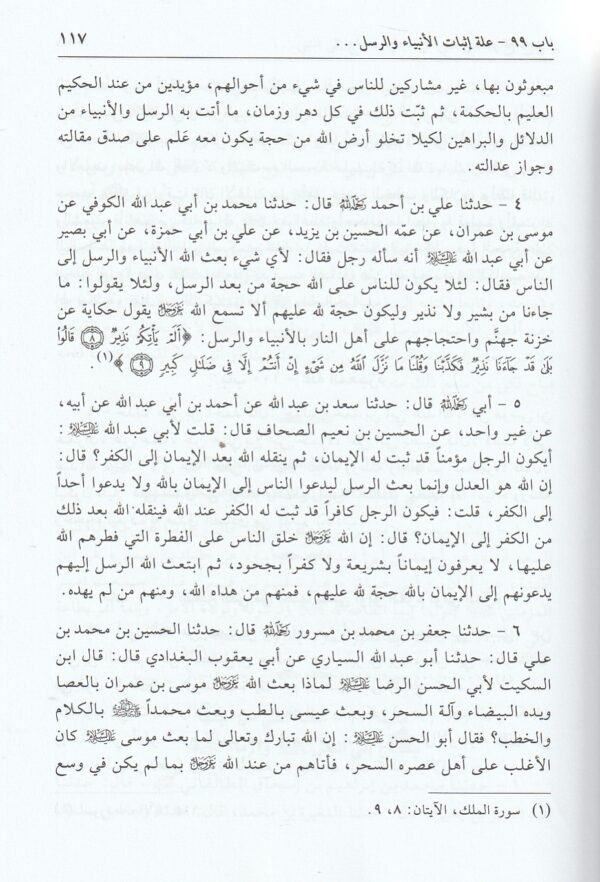 باب ٩٩ - علة إثبات الأنبياء والرسل... ١١٧
مبعوثون بها، غير مشاركين للناس في شيء من أحوالهم، مؤيدين من عند الحكيم
العليم بالحكمة، ثم ثبّت ذلك في كل دهر وزمان، ما أتت به الرسل والأنبياء من
الدلائل والبراهين لكيلا تخلو أرض الله من حجة يكون معه عَلم على صدق مقالته
وجواز عدالته.
٤ - حدثنا علي بن أحمد رحمه الله قال: حدثنا محمد بن أبي عبد الله الكوفي عن
موسى بن عمران، عن عمّه الحسين بن يزيد، عن علي بن أبي حمزة، عن أبي بصير
عن أبي عبد الله عليه السلام أنه سأله رجل فقال: لأي شيء بعث الله الأنبياء والرسل إلى
الناس فقال: لئلا يكون للناس على الله حجة من بعد الرسل، ولئلا يقولوا: ما
جاءنا من بشير ولا نذير وليكون حجة لله عليهم ألا تسمع الله عز وجل يقول حكاية عن
خزنة جهنَّم واحتجاجهم على أهل النار بالأنبياء والرسل: ﴿أَلَمْ يَأْتِكُمْ نَذِيرٌ ٨ قَالُوا
بَلَىٰ قَدْ جَاءَنَا نَذِيرٌ فَكَذَّبْنَا وَقُلْنَا مَا نَزَّلَ اللَّهُ مِن شَيْءٍ إِنْ أَنتُمْ إِلَّا فِي ضَلَالٍ كَبِيرٍ ٩﴾(١).
٥ - أبي رحمه الله قال: حدثنا سعد بن عبد الله عن أحمد بن أبي عبد الله عن أبيه،
عن غير واحد، عن الحسين بن نعيم الصحاف قال: قلت لأبي عبد الله عليه السلام :
أيكون الرجل مؤمناً قد ثبت له الإيمان، ثم ينقله الله بعد الإيمان إلى الكفر؟ قال:
إن الله هو العدل وإنما بعث الرسل ليدعوا الناس إلى الإيمان بالله ولا يدعوا أحداً
إلى الكفر، قلت: فيكون الرجل كافراً قد ثبت له الكفر عند الله فينقله الله بعد ذلك
من الكفر إلى الإيمان؟ قال: إن الله عز وجل خلق الناس على الفطرة التي فطرهم الله
عليها، لا يعرفون إيماناً بشريعة ولا كفراً بجحود، ثم ابتعث الله الرسل إليهم
يدعونهم إلى الإيمان بالله حجة لله عليهم، فمنهم من هداه الله، ومنهم من لم يهده.
٦ - حدثنا جعفر بن محمد بن مسرور رحمه الله قال: حدثنا الحسين بن محمد بن
علي قال: حدثنا أبو عبد الله السياري عن أبي يعقوب البغدادي قال: قال ابن
السكيت لأبي الحسن الرضا عليه السلام لماذا بعث الله عز وجل موسى بن عمران بالعصا
ويده البيضاء وآلة السحر، وبعث عيسى بالطب وبعث محمداً صلى الله عليه وآله وسلم بالكلام
والخطب؟ فقال أبو الحسن عليه السلام : إن الله تبارك وتعالى لما بعث موسى عليه السلام كان
الأغلب على أهل عصره السحر، فأتاهم من عند الله عز وجل بما لم يكن في وسع
(١) سورة الملك، الآيتان: ٨، ٩.